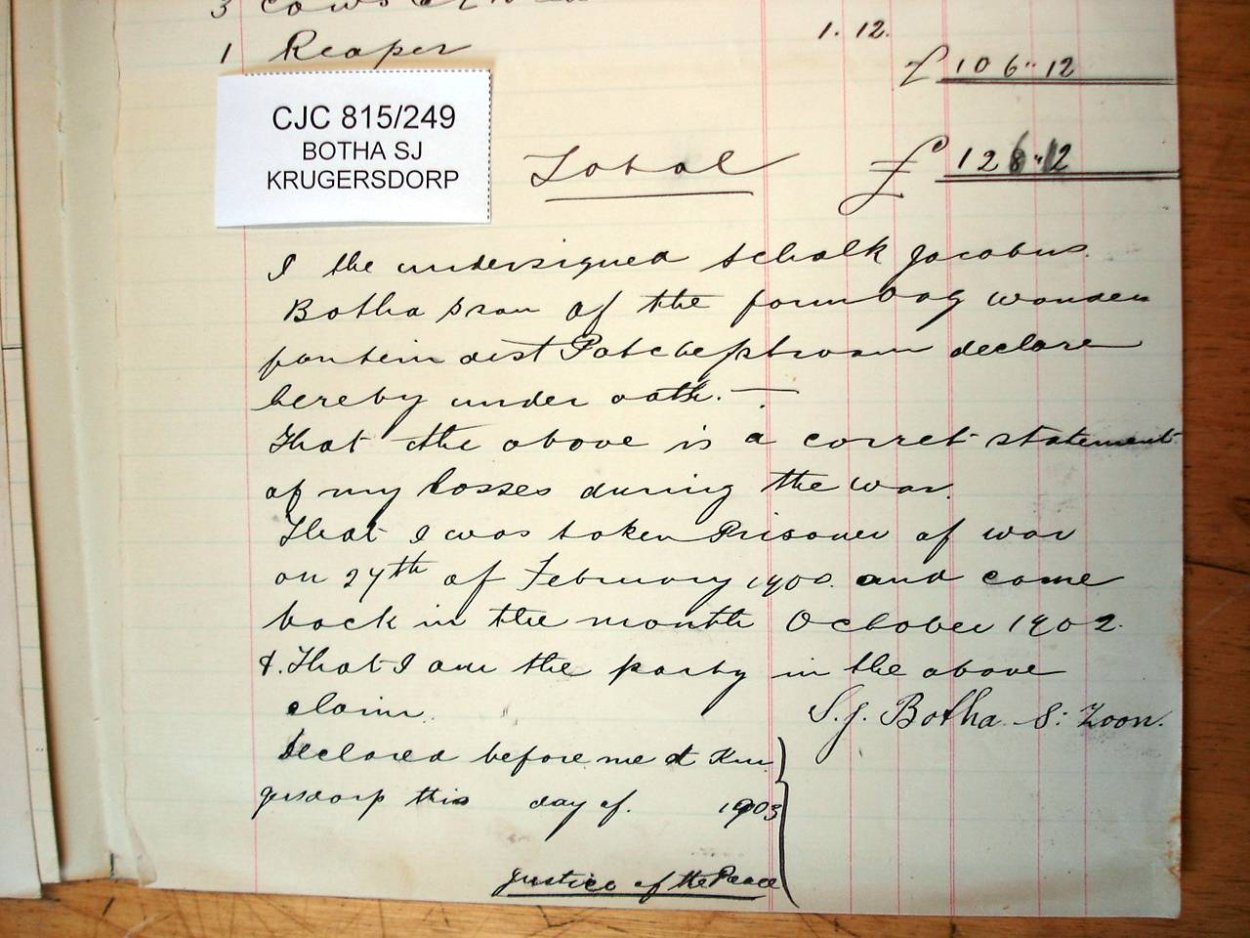 3 Cows
1 Reaper 1. 12.
£ 106 " 12
CJC 815/249
BOTHA SJ
KRUGERSDORP
Total £ 126 " 12
I the undersigned Schalk Jacobus
Botha of the farm Wonder
fontein dist Potchefstroom declare
hereby under oath. —
That the above is a corret statement
of my losses during the war.
That I was taken Prisoner of war
on 27th of February 1900. and came
back in the month October 1902.
&. That I am the party in the above
claim.
S. J. Botha S: Zoon.
Declared before me at Kru
gersdorp this day of. 1903
Justice of the Peace